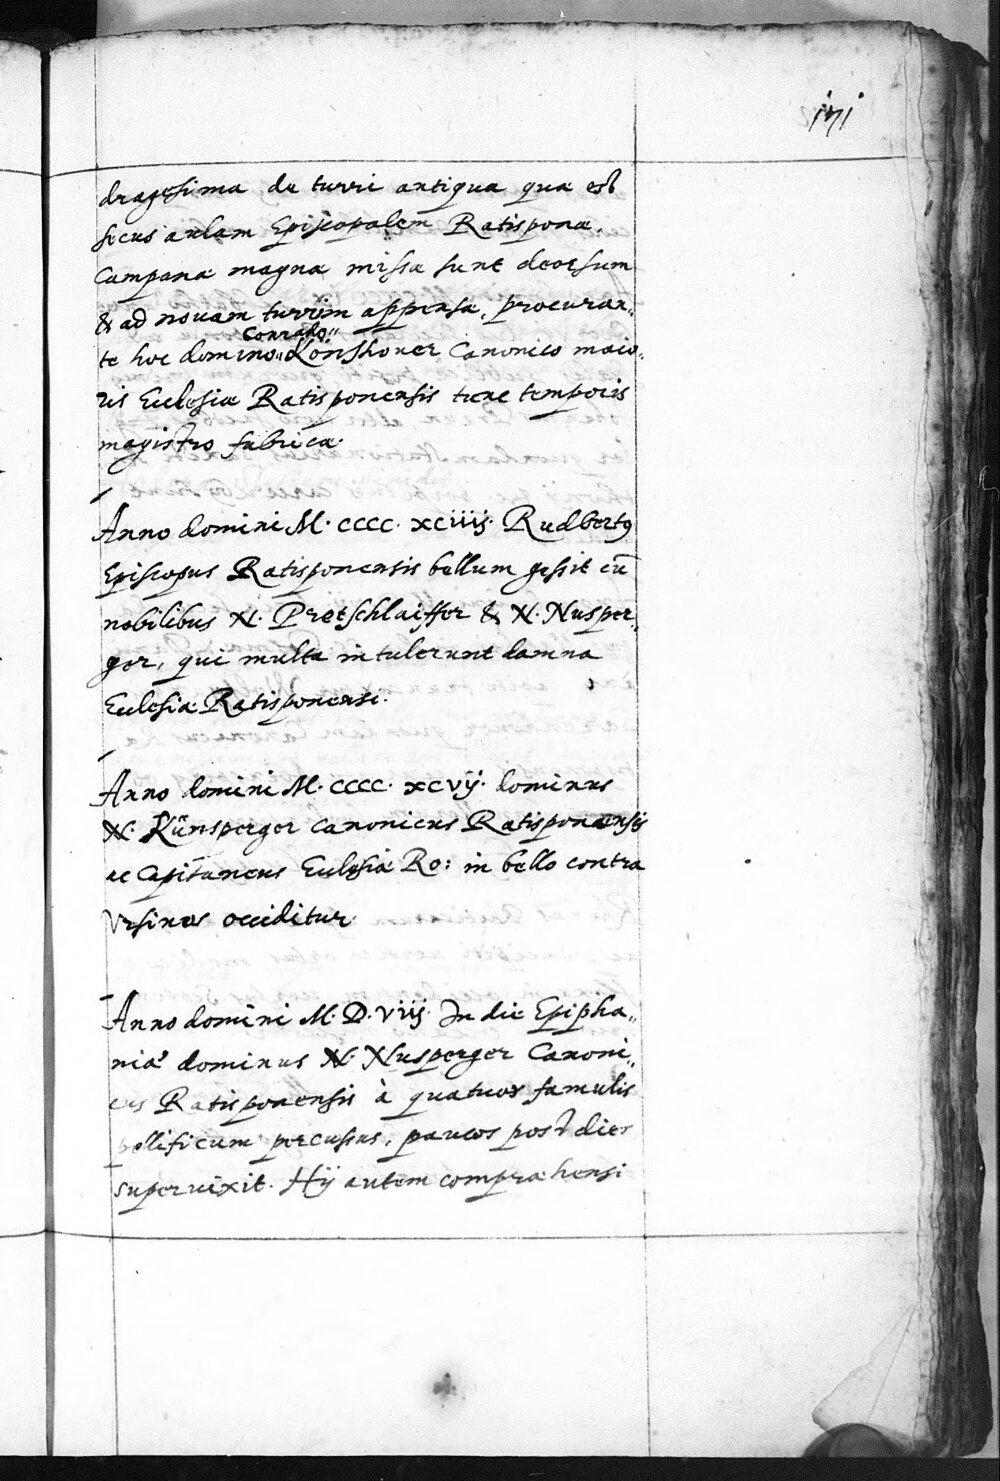 171
dragesima de turri antiqua quæ est
secus aulam Episcopalem Ratisponæ,
Campanæ magnæ missæ sunt deorsum
& ad nouam turrim appensæ, procuran„
Conrado„
te hoc domino„ Könshouer Canonico maio„
ris Ecclesiæ Ratisponensis tunc temporis
magistro fabricæ.
Anno domini M. CCCC. XCIIIJ. Rudbertꝰ
Episcopus Ratisponensis bellum gessit cū
nobilibus N. Pretschlaiffer & N. Nusper„
ger, qui multa intulerunt damna
Ecclesiæ Ratisponensi.
Anno domini M. CCCC. XCVIJ. dominus
N. Künsperger Canonicus Ratisponensis
ac Capitaneus Ecclesiæ Ro: in bello contra
Vrsinos occiditur.
Anno domini M. D. VIIJ. In die Epipha„
niæ dominus N. Nusperger Canoni„
cus Ratisponensis à quatuor famulis
pellificum percussus, paucos post dies
superuixit. Hÿ autem compræhensi